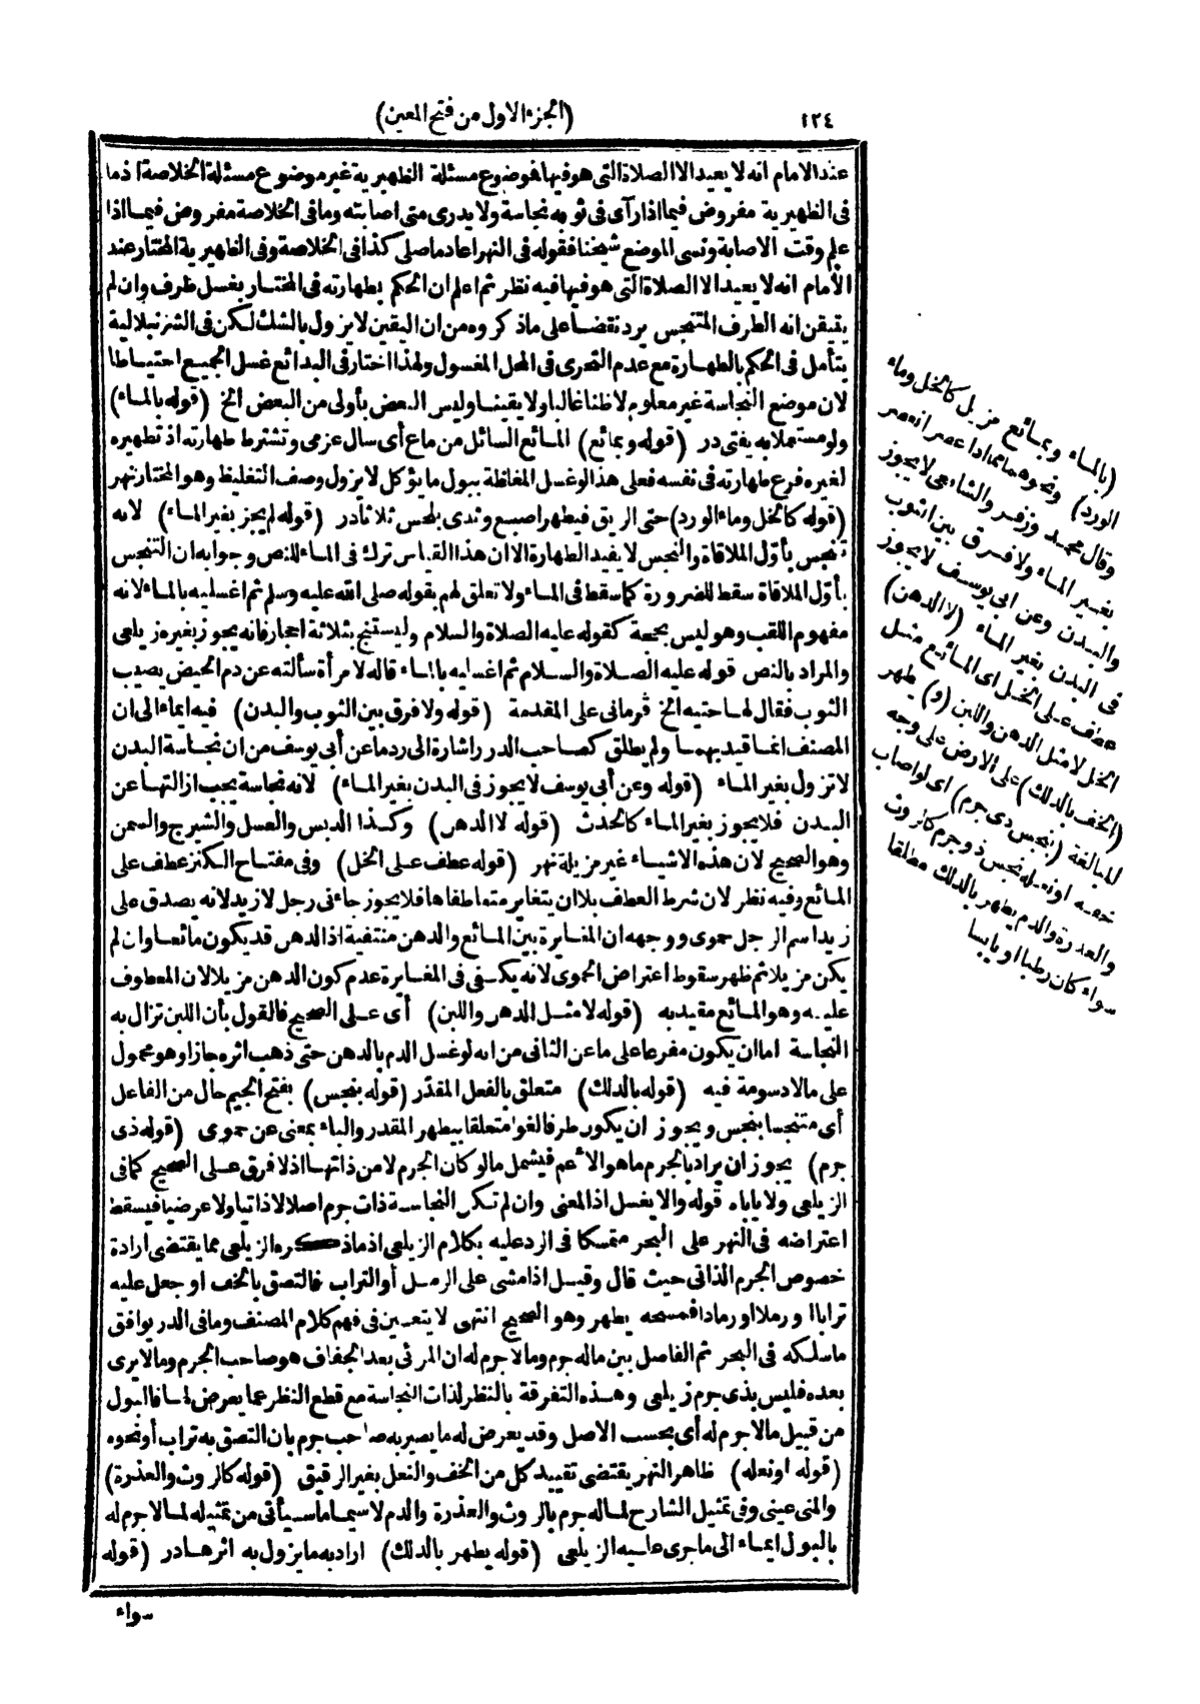 ١٢٤
(الجزء الاول من فتح المعين)
عند الامام انه لا يعيد الا الصلاة التى هو فيها فموضوع مسئلة الظهيرية غير موضوع مسئلة الخلاصة اذ ما
فى الظهيرية مفروض فيما اذا رأى فى ثوبه نجاسة ولا يدرى متى اصابته وما فى الخلاصة مفروض فيما اذا
علم وقت الاصابة ونسى الموضع شيخنا فقوله فى النهر اعاد ما صلى كذا فى الخلاصة وفى الظهيرية المختار عند
الامام انه لا يعيد الا الصلاة التى هو فيها فيه نظر ثم اعلم ان الحكم بطهارته فى المختار بغسل طرف وان لم
يتيقن انه الطرف المتنجس يرد نقضا على ماذكروه من ان اليقين لا يزول بالشك لكن فى الشرنبلالية
يتأمل فى الحكم بالطهارة مع عدم التحرى فى المحل المغسول ولهذا اختار فى البدائع غسل الجميع احتياطا
لان موضع النجاسة غير معلوم لا ظنا غالبا ولا يقينا وليس البعض بأولى من البعض الخ (قوله بالماء)
ولو مستعملا به يفتى در (قوله وبمائع) المائع السائل من ماع أى سال عزمى وتشترط طهارته اذ تطهيره
لغيره فرع طهارته فى نفسه فعلى هذا لو غسل المغلظة ببول ما يؤكل لا يزول وصف التغليظ وهو المختار نهر
(قوله كالخل وماء الورد) حتى الريق فيطهر اصبع وثدى بلحس ثلاثا در (قوله لم يجز بغير الماء) لانه
تنجس بأول الملاقاة والنجس لا يفيد الطهارة الا ان هذا القياس ترك فى الماء للنص وجوابه ان التنجس
بأول الملاقاة سقط للضرورة كما سقط فى الماء ولا تعلق لهم بقوله صلى الله عليه وسلم ثم اغسليه بالماء لانه
مفهوم اللقب وهو ليس بحجة كقوله عليه الصلاة والسلام وليستنج بثلاثة احجار فانه يجوز بغيره زيلعى
والمراد بالنص قوله عليه الصلاة والسلام ثم اغسليه بالماء قاله لامرأة سألته عن دم الحيض يصيب
الثوب فقال لها حتيه الخ قرمانى على المقدمة (قوله ولا فرق بين الثوب والبدن) فيه ايماء الى ان
المصنف انما قيد بهما ولم يطلق كصاحب الدرر اشارة الى رد ما عن أبى يوسف من ان نجاسة البدن
لا تزول بغير الماء (قوله وعن أبى يوسف لا يجوز فى البدن بغير الماء) لانه نجاسة يجب ازالتها عن
البدن فلا يجوز بغير الماء كالحدث (قوله لا الدهن) وكذا الدبس والعسل والشيرج والسمن
وهو الصحيح لان هذه الاشياء غير مزيلة نهر (قوله عطف على الخل) وفى مفتاح الكنز عطف على
المائع وفيه نظر لان شرط العطف بلا ان يتغاير متعاطفاها فلا يجوز جاءنى رجل لا زيد لانه يصدق على
زيد اسم الرجل حموى ووجهه ان المغايرة بين المائع والدهن منتفية اذ الدهن قد يكون مائعا وان لم
يكن مزيلا ثم ظهر سقوط اعتراض الحموى لانه يكفى فى المغايرة عدم كون الدهن مزيلا لان المعطوف
عليه وهو المائع مقيد به (قوله لا مثل الدهن واللبن) أى على الصحيح فالقول بأن اللبن تزال به
النجاسة اما ان يكون مفرعا على ما عن الثانى من انه لو غسل الدم بالدهن حتى ذهب اثره جاز او هو محمول
على ما لا دسومة فيه (قوله بالدلك) متعلق بالفعل المقدر (قوله بنجس) بفتح الجيم حال من الفاعل
أى متنجسا بنجس ويجوز ان يكون ظرفا لغوا متعلقا بيطهر المقدر والباء بمعنى عن حموى (قوله ذى
جرم) يجوز ان يراد بالجرم ما هو الاعم فيشمل ما لو كان الجرم لا من ذاتها اذ لا فرق على الصحيح كما فى
الزيلعى ولا يأباه قوله والا يغسل اذ المعنى وان لم تكن النجاسة ذات جرم اصلا لا ذاتيا ولا عرضيا فيسقط
اعتراضه فى النهر على البحر متمسكا فى الرد عليه بكلام الزيلعى اذ ماذكره الزيلعى مما يقتضى ارادة
خصوص الجرم الذاتى حيث قال وقيل اذا مشى على الرمل أو التراب فالتصق بالخف او جعل عليه
ترابا او رملا او رمادا فمسحه يطهر وهو الصحيح انتهى لا يتعين فى فهم كلام المصنف وما فى الدر يوافق
ما سلكه فى البحر ثم الفاصل بين ما له جرم وما لا جرم له ان المرئى بعد الجفاف هو صاحب الجرم وما لا يرى
بعده فليس بذى جرم زيلعى وهذه التفرقة بالنظر لذات النجاسة مع قطع النظر عما يعرض لها فالبول
من قبيل ما لا جرم له أى بحسب الاصل وقد يعرض له ما يصير به صاحب جرم بان التصق به تراب أو نحوه
(قوله او نعله) ظاهر النهر يقتضى تقييد كل من الخف والنعل بغير الرقيق (قوله كالروث والعذرة)
والمنى عينى وفى تمثيل الشارح لما له جرم بالروث والعذرة والدم لا سيما ما سيأتى من تمثيله لما لا جرم له
بالبول ايماء الى ما جرى عليه الزيلعى (قوله يطهر بالدلك) اراد به ما يزول به اثرها در (قوله
سواء
(بالماء وبمائع مزيل كالخل وماء
الورد) ونحوهما مما اذا عصر انعصر
وقال محمد وزفر والشافعى لا يجوز
بغير الماء ولا فرق بين الثوب
والبدن وعن ابى يوسف لا يجوز
فى البدن بغير الماء (لا الدهن)
عطف على الخل اى المائع مثل
الخل لا مثل الدهن واللبن (و) يطهر
(الخف بالدلك) على الارض على وجه
المبالغة (بنجس ذى جرم) اى لو اصاب
خفه او نعله نجس ذو جرم كالروث
والعذرة والدم يطهر بالدلك مطلقا
سواء كان رطبا او يابسا